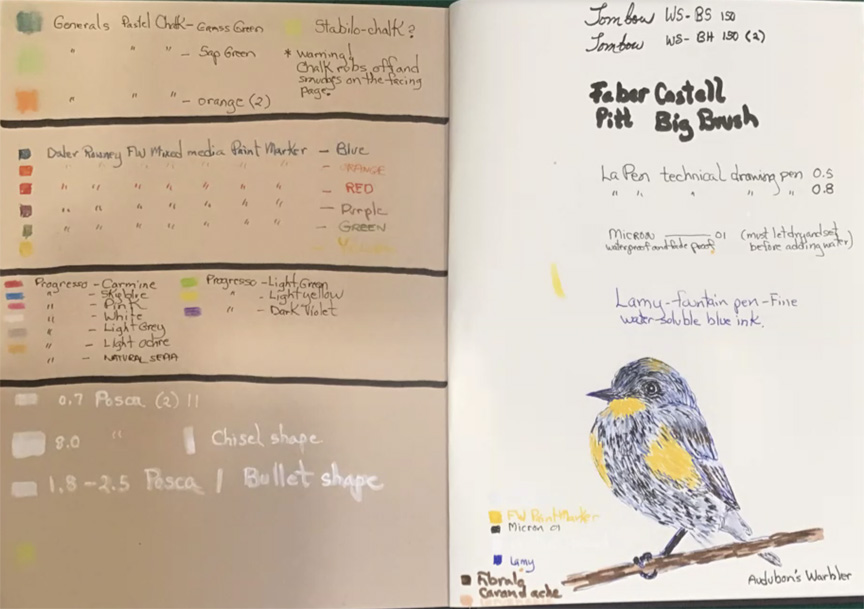 Generals Pastel Chalk - Green
" " " - Sap Green
" " " - orange (2)
Stabilo-chalk?
* warning!
Chalk rubs off and
smudges on the facing
page.
Daler Rowney FW Mixed media Paint Marker - Blue
" " " " " " " - ORANGE
" " " " " " " - RED
" " " " " " " - Purple
" " " " " " " - GREEN
- Yellow
Progresso - Carmine
" - Skyblue
" - Pink
" - White
" - Light Grey
" - Light Ochre
" - NATURAL SEPIA
Progresso - Light Green
" - Light yellow
" - Dark Violet
0.7 Posca (2) ||
8.0 " | Chisel shape
1.8-2.5 Posca | Bullet shape
Tombow WS-BS 150
Tombow WS-BH 150 (2)
Faber Castell
Pitt Big Brush
La Pen technical drawing pen 0.5
" " " " " 0.8
MICRON 01 (must let dry and set
waterproof and fade proof before adding water)
Lamy-fountain pen-Fine
water-soluble blue ink.
FW Paint Marker
Micron 01
Lamy
Fibralo
Carandache
Audubon's Warbler